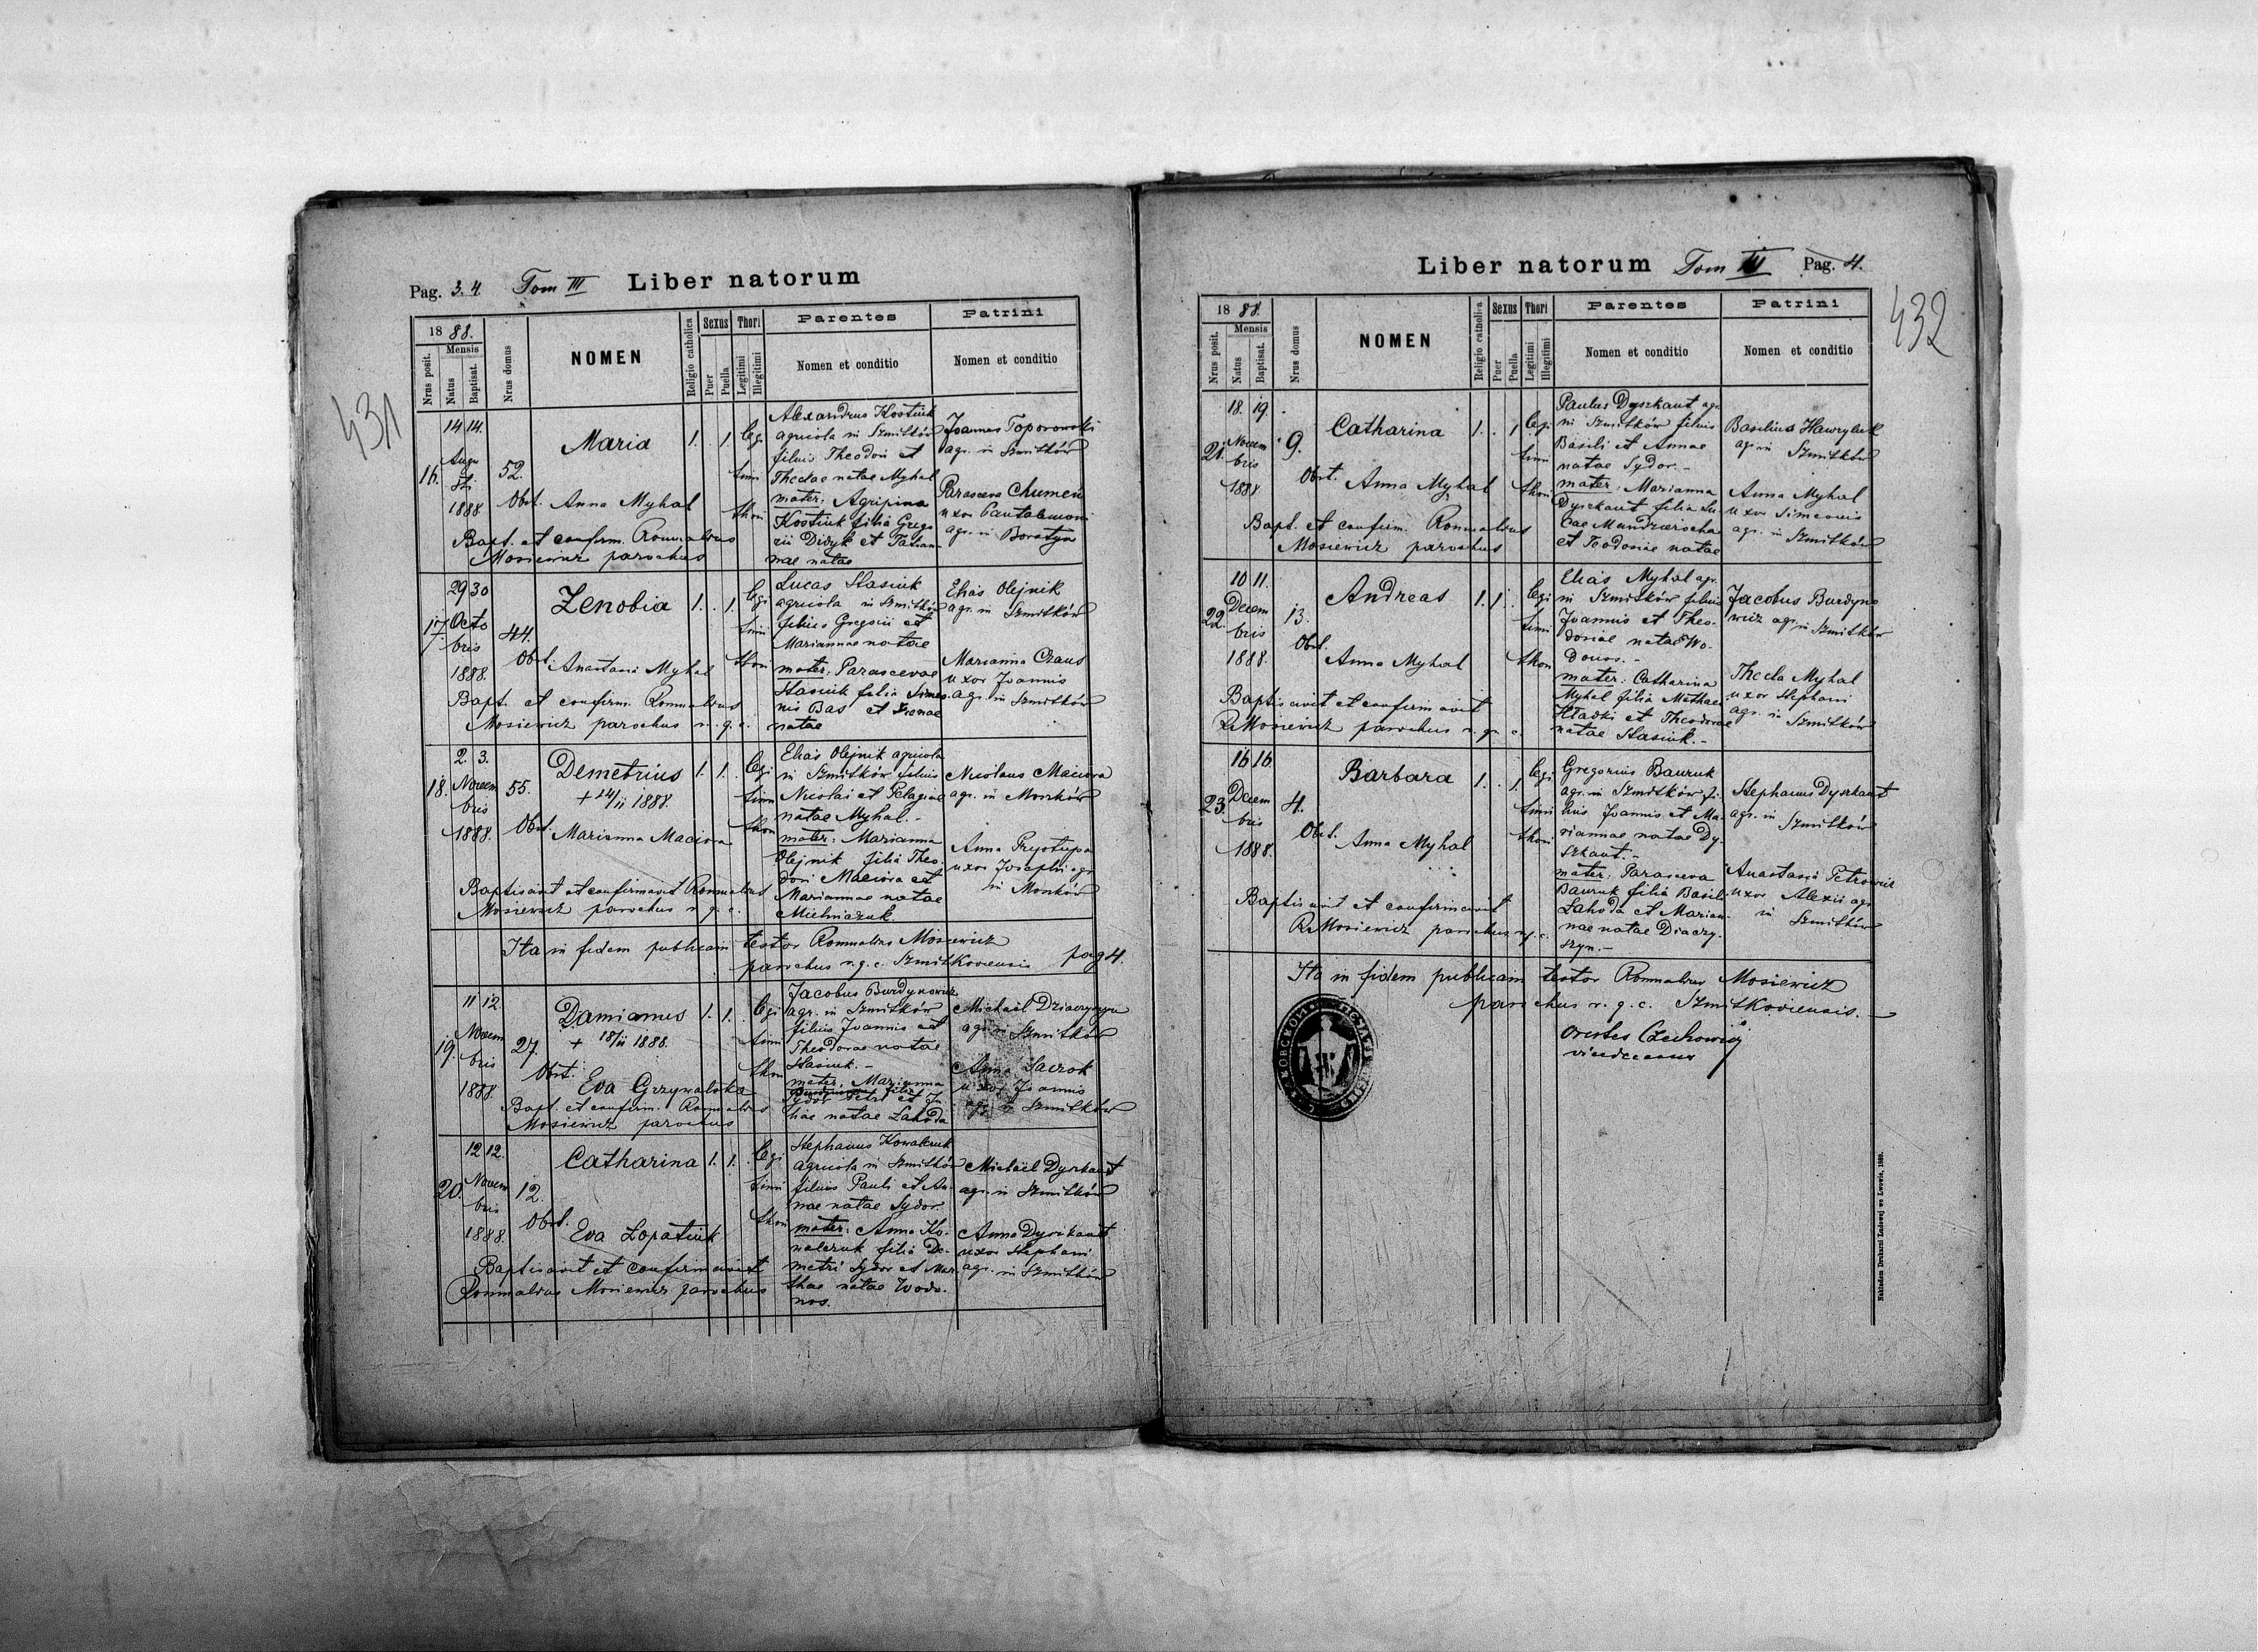 431
Pag. 3. 4. Tom III Liber natorum
18 88.
Nrus posit.
Mensis
Natus
Baptisat.
Nrus domus
NOMEN
Religio catholica
Sexus
Puer
Puella
Thori
Legitimi
Illegitimi
Parentes
Nomen et conditio
Patrini
Nomen et conditio
16.
14 14.
Augu
sti
1888
52.
Maria
1. . 1.
legi
timi
thori
Obst. Anna Myhal
Bapt. et confirm. Romualdus
Mosiewicz parochus
Alexandrus Kostiuk
agricola in Szmitków
filius Theodori et
Theclae natae Myhal
mater: Agripina
Kostiuk filia Grego
rii Didyk et Tatian
nae natae
Joannes Toporowski
agr. in Szmitków
Parasceva Chumen
uxor Pantalemoni
agr. in Boratyn
17.
29 30
Octo
bris
1888.
44.
Zenobia
1. . 1.
legi
timi
thori
Obst. Anastasia Myhal
Bapt. et confirm. Romualdus
Mosiewicz parochus r. g. c.
Lucas Stasiuk
agricola in Szmitków
filius Gregorii et
Mariannae natae
mater: Parascevae
Stasiuk filia Simeo
nis Bas et Xenae
natae
Elias Olejnik
agr. in Szmitków
Marianna Czaus
uxor Joannis
agr. in Szmitków
18.
2. 3.
Novem
bris
1888.
55.
Demetrius
+ 14/11 1888.
1. 1. .
legi
timi
thori
Obst. Marianna Maciora
Baptisavit et confirmavit Romualdus
Mosiewicz parochus r. g. c.
Elias Olejnik agricola
in Szmitków filius
Nicolai et Pelagiae
natae Myhal.-
mater: Marianna
Olejnik filia Theo
dori Maciora et
Mariannae natae
Mielniczuk.
Nicolaus Maciora
agr. in Moszków
Anna Prystupa
uxor Josephi agr
in Moszków
Ita in fidem publicam testor Romualdus Mosiewicz
parochus r. g. c. Szmitkoviensis pag 4.
19.
11 12.
Novem
bris
1888.
27.
Damianus
+ 18/11 1888.
1. 1. .
legi
timi
thori
Obst. Eva Grzywalska
Bapt. et confirm. Romualdus
Mosiewicz parochus
Jacobus Burdynowicz
agr. in Szmitków
filius Joannis et
Theodorae natae
Stasiuk.-
mater: Marianna
filia
Sydor Petri et Ju
liae natae Lahoda
Michaël Dziaczyszyn
agr. in Szmitków
Anna Saczok
uxor Joannis
agr. in Szmitków
20.
12 12.
Novem
bris
1888.
12.
Catharina
1. 1. .
legi
timi
thori
Obst. Eva Lopatiuk
Baptisavit et confirmavit
Romualdus Mosiewicz parochus
Stephanus Kowalczuk
agricola in Szmitków
filius Pauli et An
nae natae Sydor.
mater: Anna Ko-
walczuk filia De-
metri Sydor et Mar
thae natae Wodo-
nos.
Michaël Dyszkant
agr. in Szmitków
Anna Dyszkant
uxor Stephani
agr. in Szmitków
Liber natorum Tom III Pag. 4.
432
18 88.
Nrus posit.
Mensis
Natus
Baptisat.
Nrus domus
NOMEN
Religio catholica
Sexus
Puer
Puella
Thori
Legitimi
Illegitimi
Parentes
Nomen et conditio
Patrini
Nomen et conditio
21.
18. 19.
Novem
bris
1888
9.
Catharina
1. . 1
legi
timi
thori
Obst. Anna Myhal
Bapt. et confirm. Romualdus
Mosiewicz parochus
Paulus Dyszkant agr.
in Szmitków filius
Basili et Annae
natae Sydor.-
mater: Marianna
Dyszkant filia Lu
cae Mandziarocha
et Teodosiae natae
Basilius Hawryluk
agr. in Szmitków
Anna Myhal
uxor Simeonis
agr. in Szmitków
22.
10 11.
Decem
bris
1888.
13.
Andreas
1. 1. .
legi
timi
thori
Obst.
Anna Myhal
Baptisavit et confirmavit
R. Mosiewicz parochus r. g. c
Elias Myhal agr.
in Szmitków filius
Joannis et Theo-
dosiae natae Wo-
donos.-
mater: Catharina
Myhal filia Mathaei
Hladki et Theodorae
natae Stasiuk.-
Jacobus Burdyno
wicz agr. in Szmitków
Thecla Myhal
uxor Stephani
agr. in Szmitków
23.
16 16.
Decem
bris
1888.
4.
Barbara
1. . 1.
legi
timi
thori
Obst. Anna Myhal
Baptisavit et confirmavit
R. Mosiewicz parochus r. g. c.
Gregorius Bauruk
agr. in Szmitków fi-
lius Joannis et Ma-
riannae natae Dy-
szkant.-
mater: Parasceva
Bauruk filia Basili
Lahoda et Marian-
nae natae Diaczy-
szyn.-
Stephanus Dyszkant
agr. in Szmitków
Anastasia Petrowicz
uxor Alexii agr
in Szmitków
Ita in fidem publicam testor Romualdus Mosiewicz
parochus r. g. c. Szmitkoviensis.-
Orestes Czechowicz
vicedecanus
Nakładem Drukarni Ludowej we Lwowie, 1889.